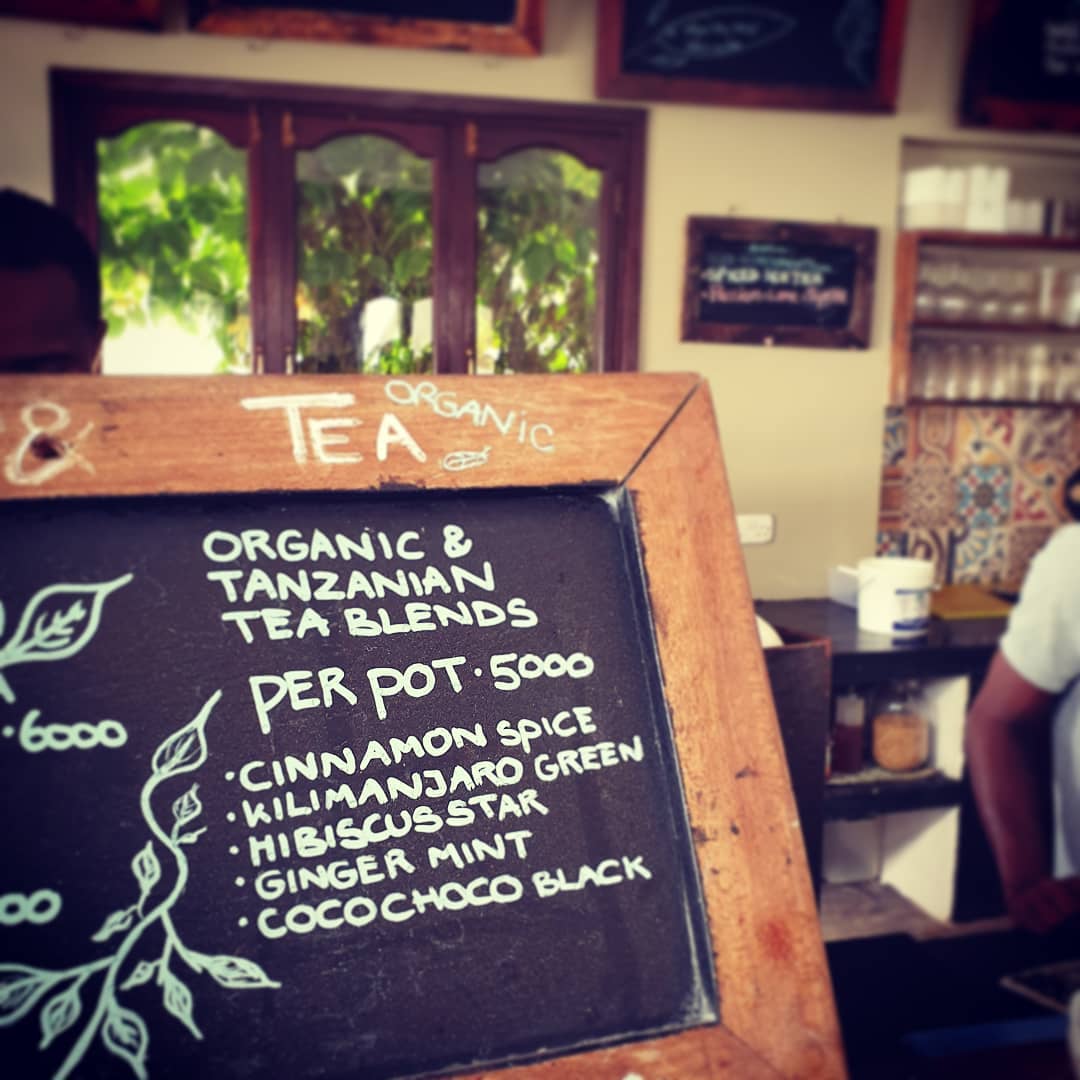 & TEA ORGANIC
ORGANIC &
TANZANIAN
TEA BLENDS
PER POT · 5000
· CINNAMON SPICE
· KILIMANJARO GREEN
· HIBISCUS STAR
· GINGER MINT
· COCOCHOCO BLACK
· 6000
00